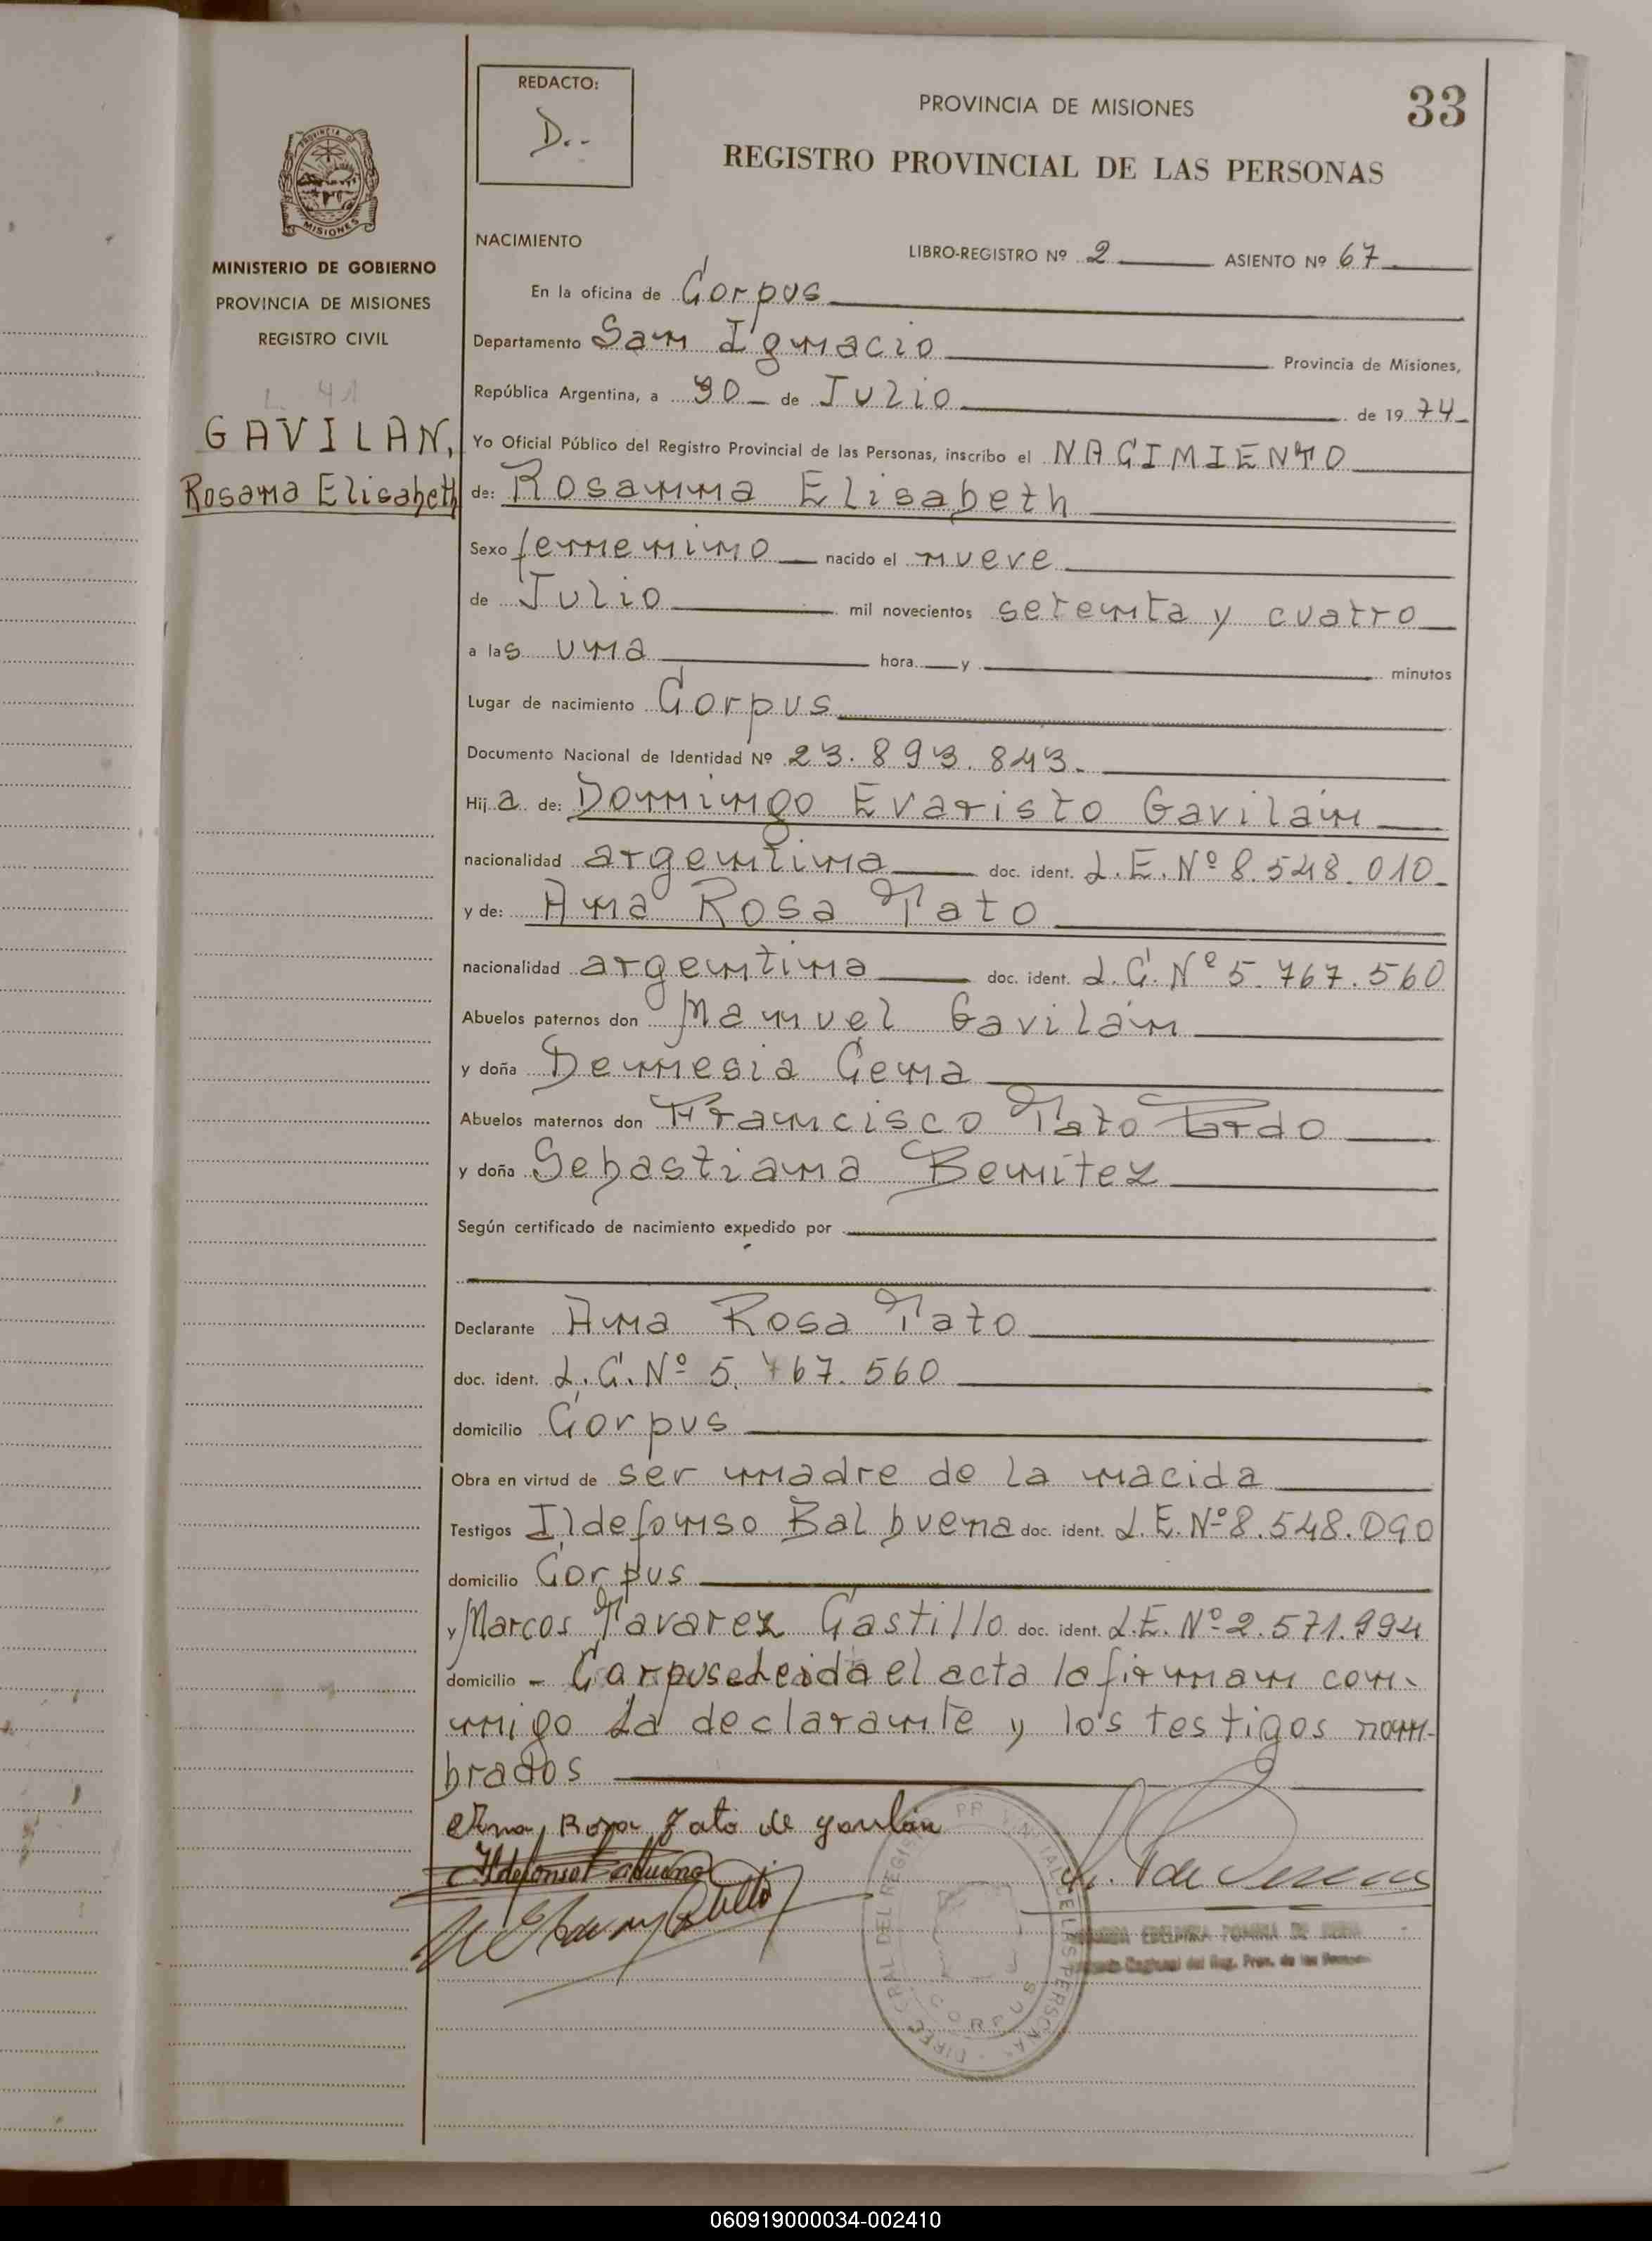 REDACTO:
D..
PROVINCIA DE MISIONES
33
REGISTRO PROVINCIAL DE LAS PERSONAS
PROVINCIA DE
MISIONES
MINISTERIO DE GOBIERNO
PROVINCIA DE MISIONES
REGISTRO CIVIL
L 41
GAVILAN,
Rosana Elisabeth
NACIMIENTO
LIBRO-REGISTRO Nº 2 ASIENTO Nº 67
En la oficina de Corpus
Departamento San Ignacio Provincia de Misiones,
República Argentina, a 30 de Julio de 1974
Yo Oficial Público del Registro Provincial de las Personas, inscribo el NACIMIENTO
de: Rosanna Elisabeth
Sexo femenino nacido el nueve
de Julio mil novecientos setenta y cuatro
a las una hora y minutos
Lugar de nacimiento Corpus
Documento Nacional de Identidad Nº 23.893.843.
Hija de: Domingo Evaristo Gavilán
nacionalidad argentina doc. ident. L.E. Nº 8.548.010
y de: Ana Rosa Tato
nacionalidad argentina doc. ident. L.C. Nº 5.767.560
Abuelos paternos don Manuel Gavilán
y doña Denmesia Cena
Abuelos maternos don Francisco Tato Pardo
y doña Sebastiana Benítez
Según certificado de nacimiento expedido por
Declarante Ana Rosa Tato
doc. ident. L.C. Nº 5.767.560
domicilio Corpus
Obra en virtud de ser madre de la nacida
Testigos Ildefonso Balbuena doc. ident. L.E. Nº 8.548.090
domicilio Corpus
y Marcos Tavarez Castillo doc. ident. L.E. Nº 2.571.994
domicilio - Corpus Leida el acta la firman con-
migo La declarante y los testigos nom-
brados
Ana Rosa Tato de Gavilán
Ildefonso Balbuena
CORPUS
060919000034-002410